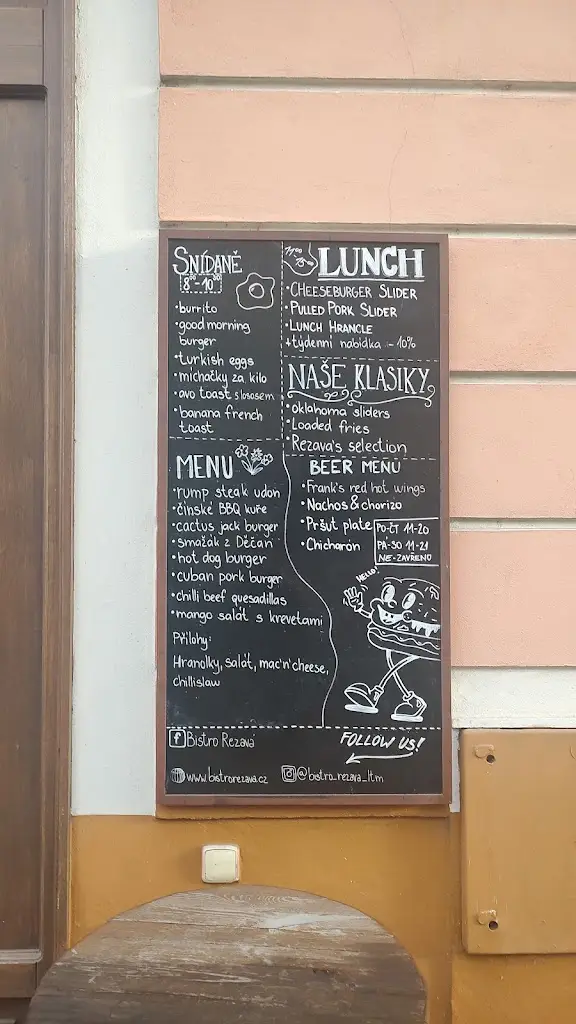 SNÍDANĚ
8⁰⁰-10³⁰
• burrito
• good morning
burger
• turkish eggs
• míchačky za kilo
• avo toast s lososem
• banana french
toast
LUNCH
• CHEESEBURGER SLIDER
• PULLED PORK SLIDER
• LUNCH HRANCLE
+týdenní nabídka - 10%
NAŠE KLASIKY
• oklahoma sliders
• Loaded fries
• Rezava's selection
MENU
• rump steak udon
• čínské BBQ kuře
• cactus jack burger
• smažák z Děčan
• hot dog burger
• cuban pork burger
• chilli beef quesadillas
• mango salát s krevetami
Přílohy:
Hranolky, salát, mac'n'cheese,
chillislaw
BEER MENU
• Frank's red hot wings
• Nachos & chorizo
• Pršut plate
• Chicharon
PO-ČT 11-20
PÁ-SO 11-21
NE-ZAVŘENO
HELLO!
Bistro Rezavá
FOLLOW US!
www.bistrorezava.cz
@bistro_rezava_ltm